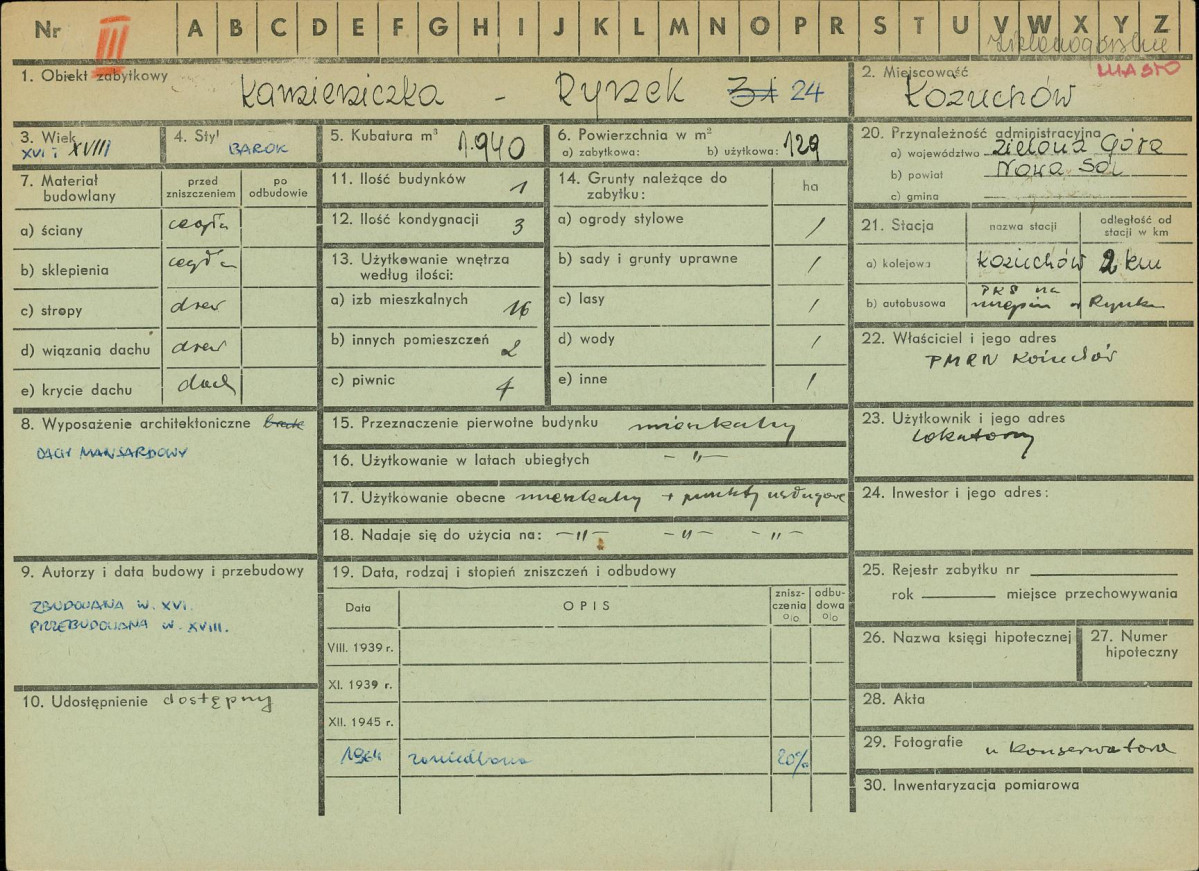 Nr III A B C D E F G H I J K L M N O P R S T U V W X Y Z
zielonogórskie
MIASTO
1. Obiekt zabytkowy
Kamieniczka - Rynek 31 24
2. Miejscowość
Kożuchów
3. Wiek
XVI i XVIII
4. Styl
BAROK
5. Kubatura m³ 1.940
6. Powierzchnia w m²
a) zabytkowa: b) użytkowa: 129
20. Przynależność administracyjna
a) województwo Zielona Góra
b) powiat Nowa Sól
c) gmina
7. Materiał budowlany
przed zniszczeniem
po odbudowie
a) ściany cegła
b) sklepienia cegła
c) stropy drew
d) wiązania dachu drew
e) krycie dachu dach
11. Ilość budynków 1
12. Ilość kondygnacji 3
13. Użytkowanie wnętrza
według ilości:
a) izb mieszkalnych 16
b) innych pomieszczeń 2
c) piwnic
14. Grunty należące do
zabytku:
ha
a) ogrody stylowe /
b) sady i grunty uprawne /
c) lasy /
d) wody /
e) inne /
21. Stacja
nazwa stacji
odległość od
stacji w km
a) kolejowa Kożuchów 2 km
b) autobusowa PKS na
miejscu w Rynku
22. Właściciel i jego adres
PMRN Kożuchów
8. Wyposażenie architektoniczne brak
DACH MANSARDOWY
15. Przeznaczenie pierwotne budynku mieszkalny
16. Użytkowanie w latach ubiegłych -"-
17. Użytkowanie obecne mieszkalny + punkty usługowe
18. Nadaje się do użycia na: -"- -"- -"-
23. Użytkownik i jego adres
lokatorzy
24. Inwestor i jego adres:
9. Autorzy i data budowy i przebudowy
ZBUDOWANA W. XVI.
PRZEBUDOWANA W. XVIII.
19. Data, rodzaj i stopień zniszczeń i odbudowy
Data
OPIS
znisz-
czenia
o|o
odbu-
dowa
o|o
VIII. 1939 r.
XI. 1939 r.
XII. 1945 r.
1964 zaniedbana 20%
25. Rejestr zabytku nr
rok miejsce przechowywania
26. Nazwa księgi hipotecznej
27. Numer
hipoteczny
10. Udostępnienie dostępny
28. Akta
29. Fotografie u Konserwatora
30. Inwentaryzacja pomiarowa